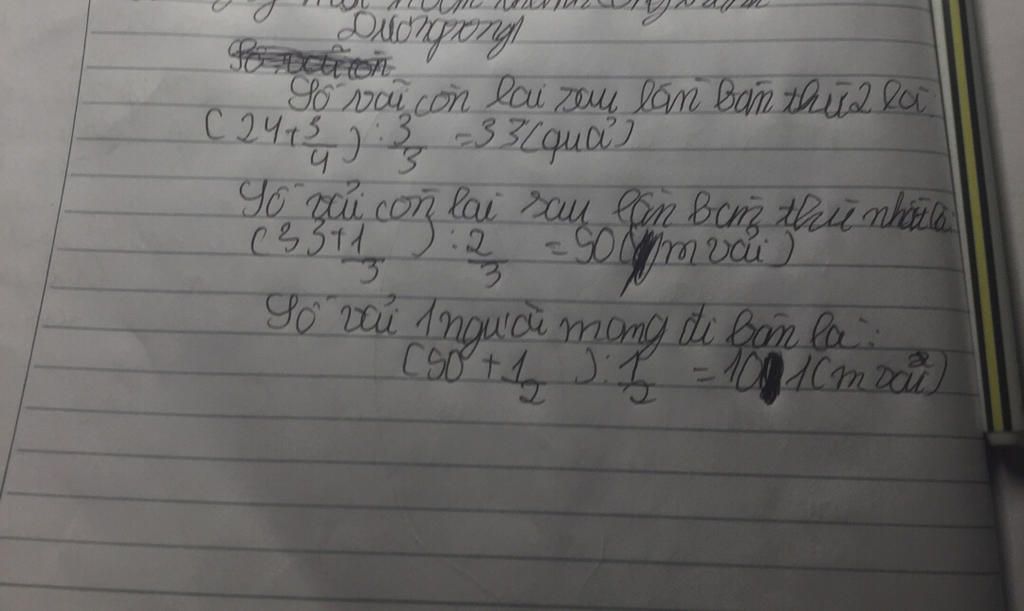 Dương
Số vải còn lại sau lần bán thứ 2 là
(24+3/4) : 3/3 = 33 (quả)
Số vải còn lại sau lần bán thứ nhất là:
(33+1/3) : 2/3 = 50 (m vải)
Số vải 1 người mang đi bán là:
(50+1/2) : 1/2 = 101 (m vải)